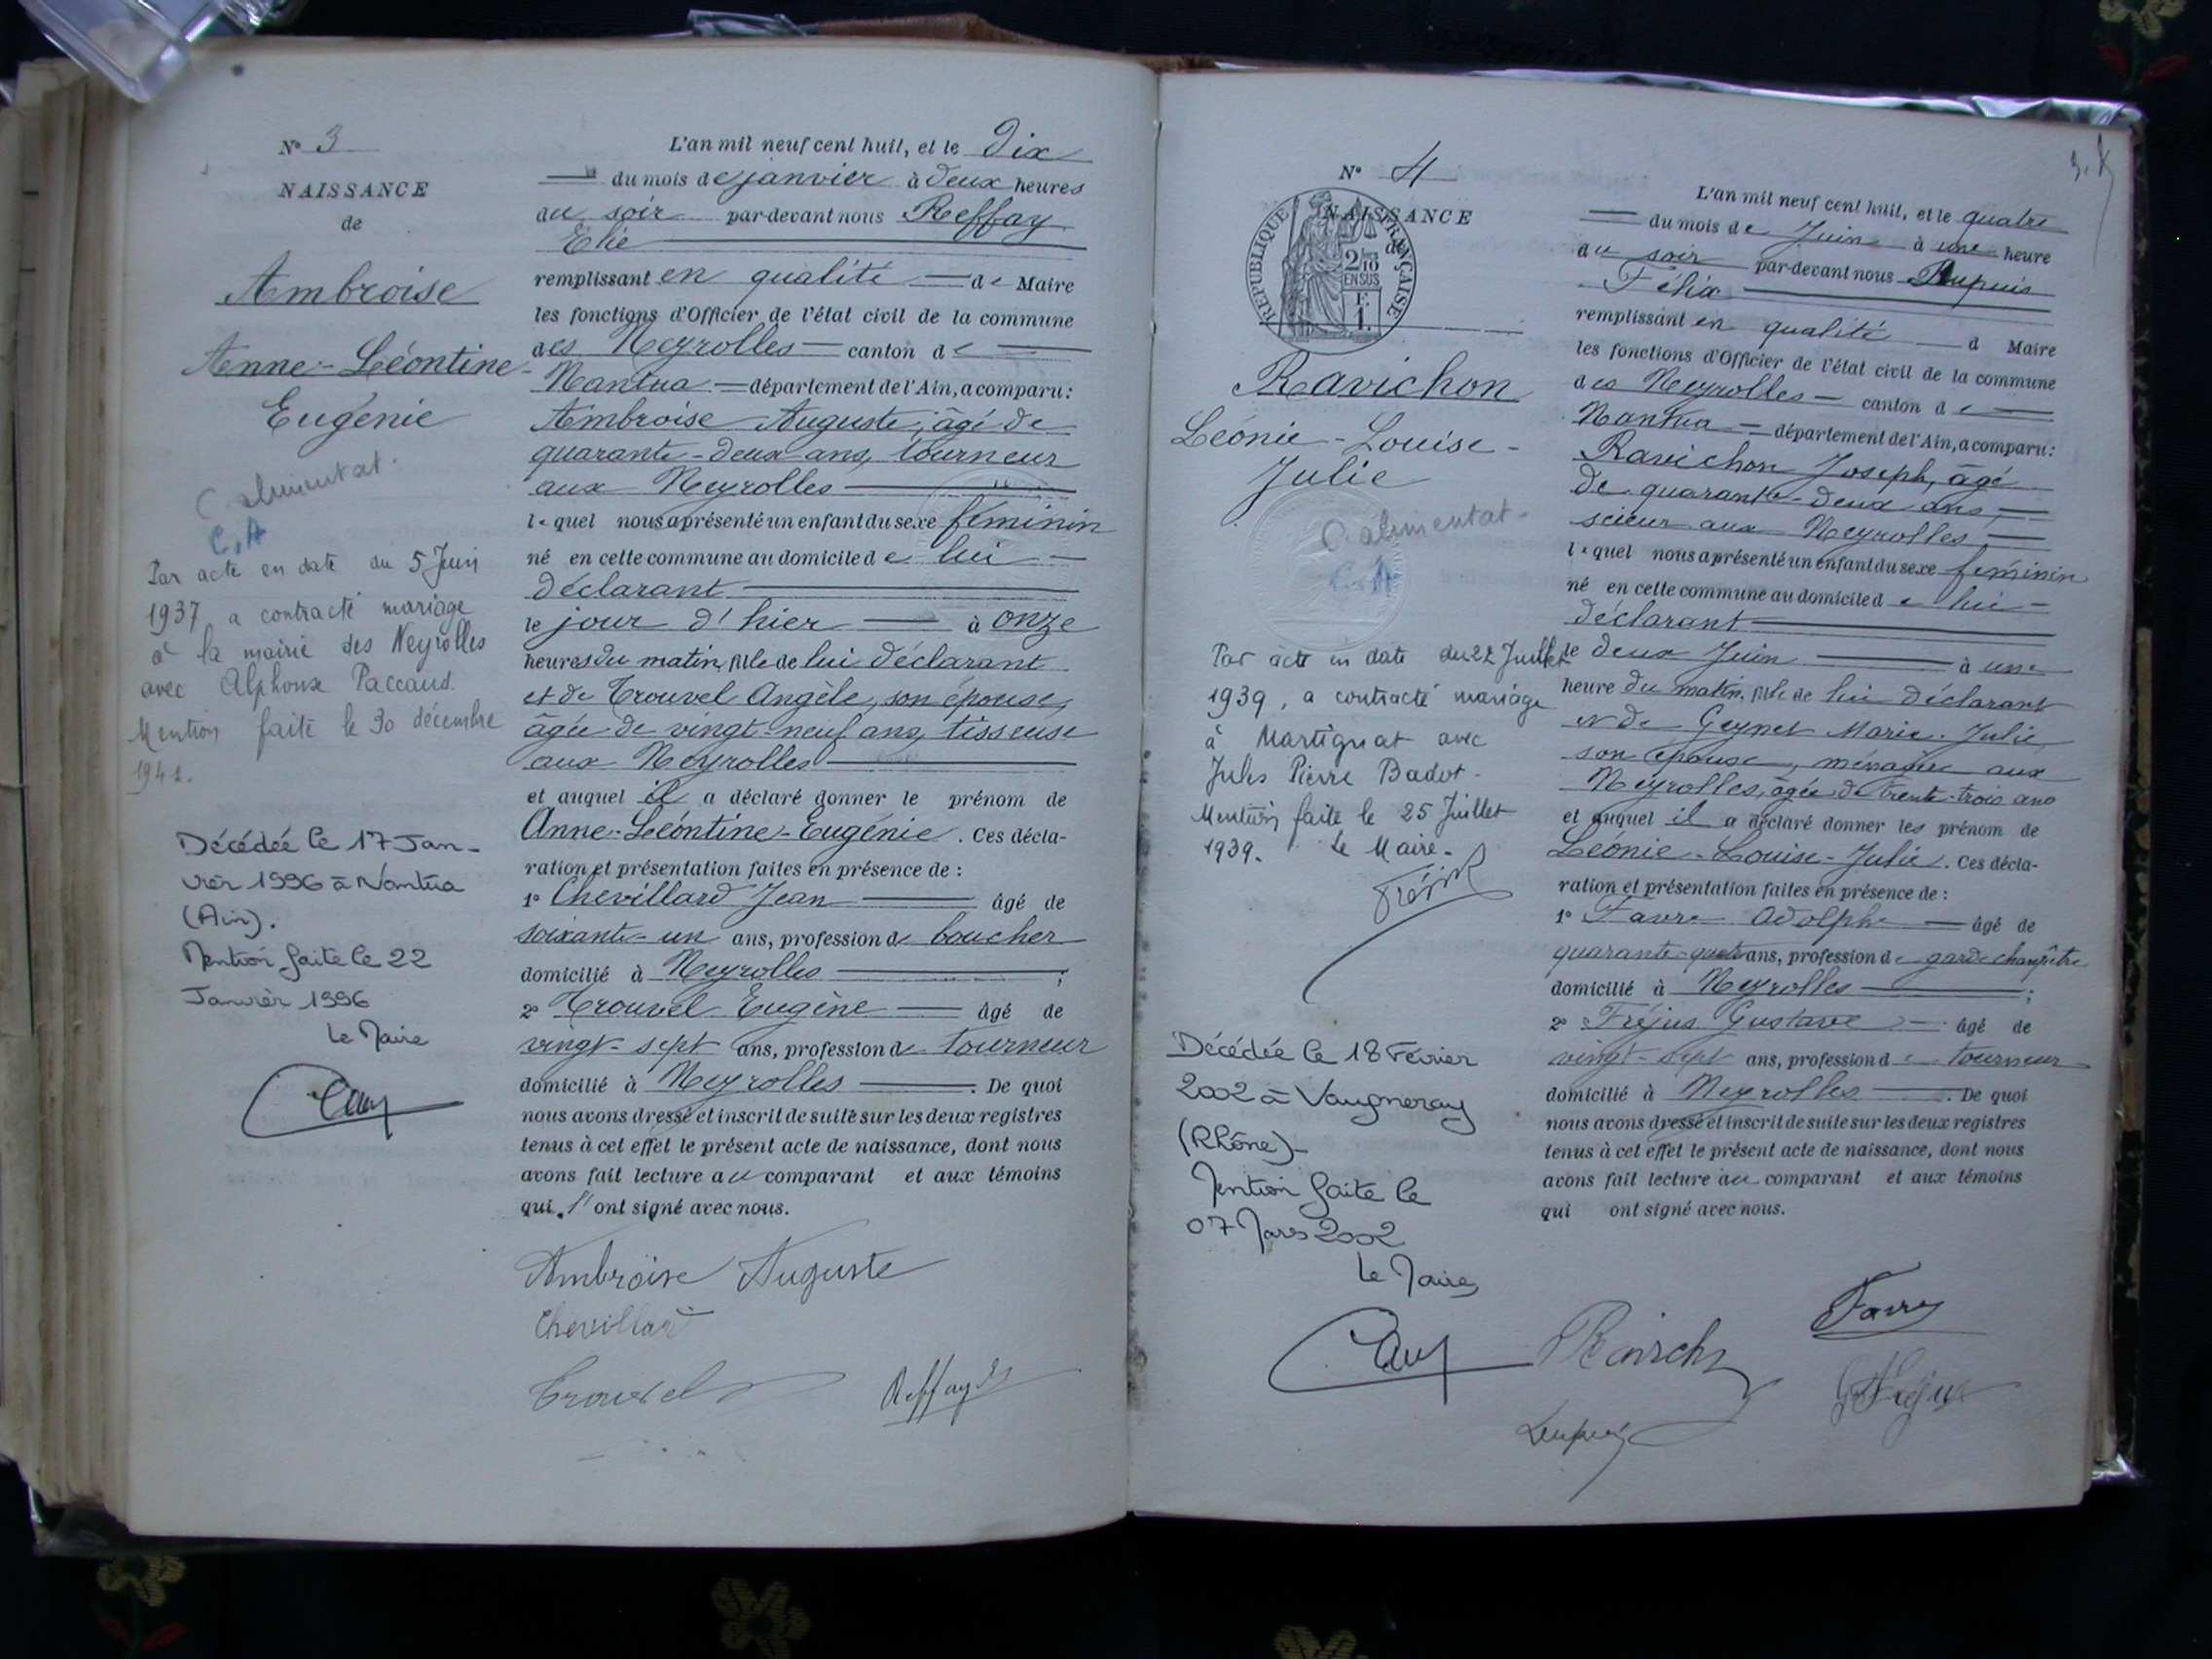 N° 3
NAISSANCE
de
Ambroise
Anne-Léontine-
Eugénie
C. alimentat.
C.A
Par acte en date du 5 Juin
1937 a contracté mariage
à la mairie des Neyrolles
avec Alphonse Paccaud.
Mention faite le 30 décembre
1941.
Décédée le 17 Jan-
vier 1996 à Nantua
(Ain).
Mention faite le 22
Janvier 1996
Le Maire
L'an mil neuf cent huit, et le Dix
du mois de janvier à deux heures
du soir par-devant nous Reffay
Elie
remplissant en qualité de Maire
les fonctions d'Officier de l'état civil de la commune
des Neyrolles canton de
Nantua département de l'Ain, a comparu:
Ambroise Auguste, âgé de
quarante-deux ans, tourneur
aux Neyrolles
lequel nous a présenté un enfant du sexe féminin
né en cette commune au domicile de lui
déclarant
le jour d'hier à onze
heures du matin, fille de lui déclarant
et de Trouvel Angèle, son épouse,
âgée de vingt-neuf ans, tisseuse
aux Neyrolles
et auquel il a déclaré donner le prénom de
Anne-Léontine-Eugénie. Ces décla-
ration et présentation faites en présence de:
1° Chevillard Jean âgé de
soixante-un ans, profession de boucher
domicilié à Neyrolles;
2° Trouvel Eugène âgé de
vingt-sept ans, profession de tourneur
domicilié à Neyrolles. De quoi
nous avons dressé et inscrit de suite sur les deux registres
tenus à cet effet le présent acte de naissance, dont nous
avons fait lecture au comparant et aux témoins
qui l'ont signé avec nous.
Ambroise Auguste
Chevillard
Trouvel
Reffay
N° 4
NAISSANCE
de
RÉPUBLIQUE FRANÇAISE
2/10
EN SUS
1 F.
Ravichon
Léonie-Louise-
Julie
C. alimentat.
C.A
Par acte en date du 22 Juillet
1939, a contracté mariage
à Martignat avec
Jules Pierre Badot.
Mention faite le 25 Juillet
1939. Le Maire.
Décédée le 18 Février
2002 à Vaugneray
(Rhône)
Mention faite le
07 Mars 2002
Le Maire
L'an mil neuf cent huit, et le quatre
du mois de Juin à une heure
du soir par-devant nous Dupuis
Félix
remplissant en qualité d Maire
les fonctions d'Officier de l'état civil de la commune
des Neyrolles canton de
Nantua département de l'Ain, a comparu:
Ravichon Joseph, âgé
de quarante-deux ans,
scieur aux Neyrolles
lequel nous a présenté un enfant du sexe féminin
né en cette commune au domicile de lui
déclarant
le deux Juin à une
heure du matin, fille de lui déclarant
et de Geynet Marie-Julie,
son épouse, ménagère aux
Neyrolles, âgée de trente-trois ans
et auquel il a déclaré donner les prénom de
Léonie-Louise-Julie. Ces décla-
ration et présentation faites en présence de:
1° Favre Adolphe âgé de
quarante-quatre ans, profession de garde champêtre
domicilié à Neyrolles;
2° Fréjus Gustave âgé de
vingt-sept ans, profession de tourneur
domicilié à Neyrolles. De quoi
nous avons dressé et inscrit de suite sur les deux registres
tenus à cet effet le présent acte de naissance, dont nous
avons fait lecture au comparant et aux témoins
qui ont signé avec nous.
Favre
G. Fréjus
Dupuis